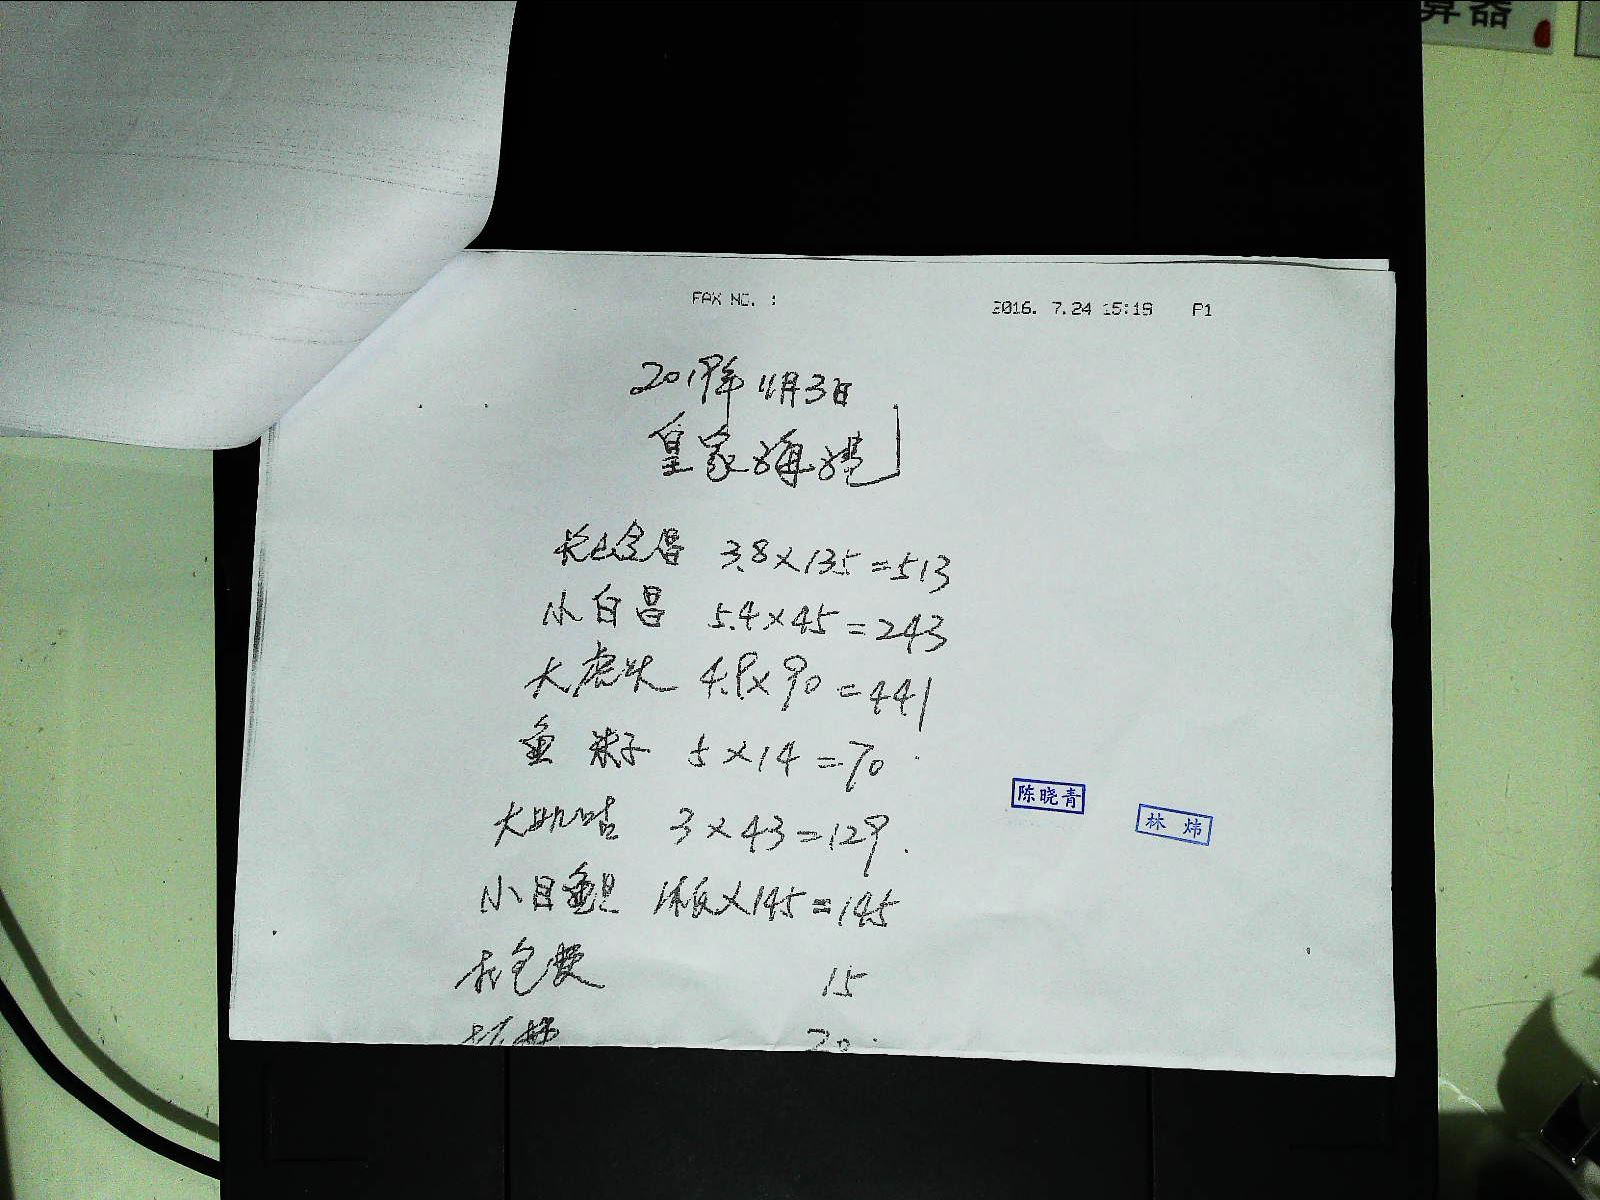 算器
FAX NO. :
2016. 7.24 15:19 P1
2019年11月3日
皇家海港
3.8×135=513
小白昌 5.4×45=243
大虎 4.9×90=441
鱼 子 5×14=70
大 3×43=129.
小目鱼 ×145=145
包费 15
20.
陈晓青
林 炜